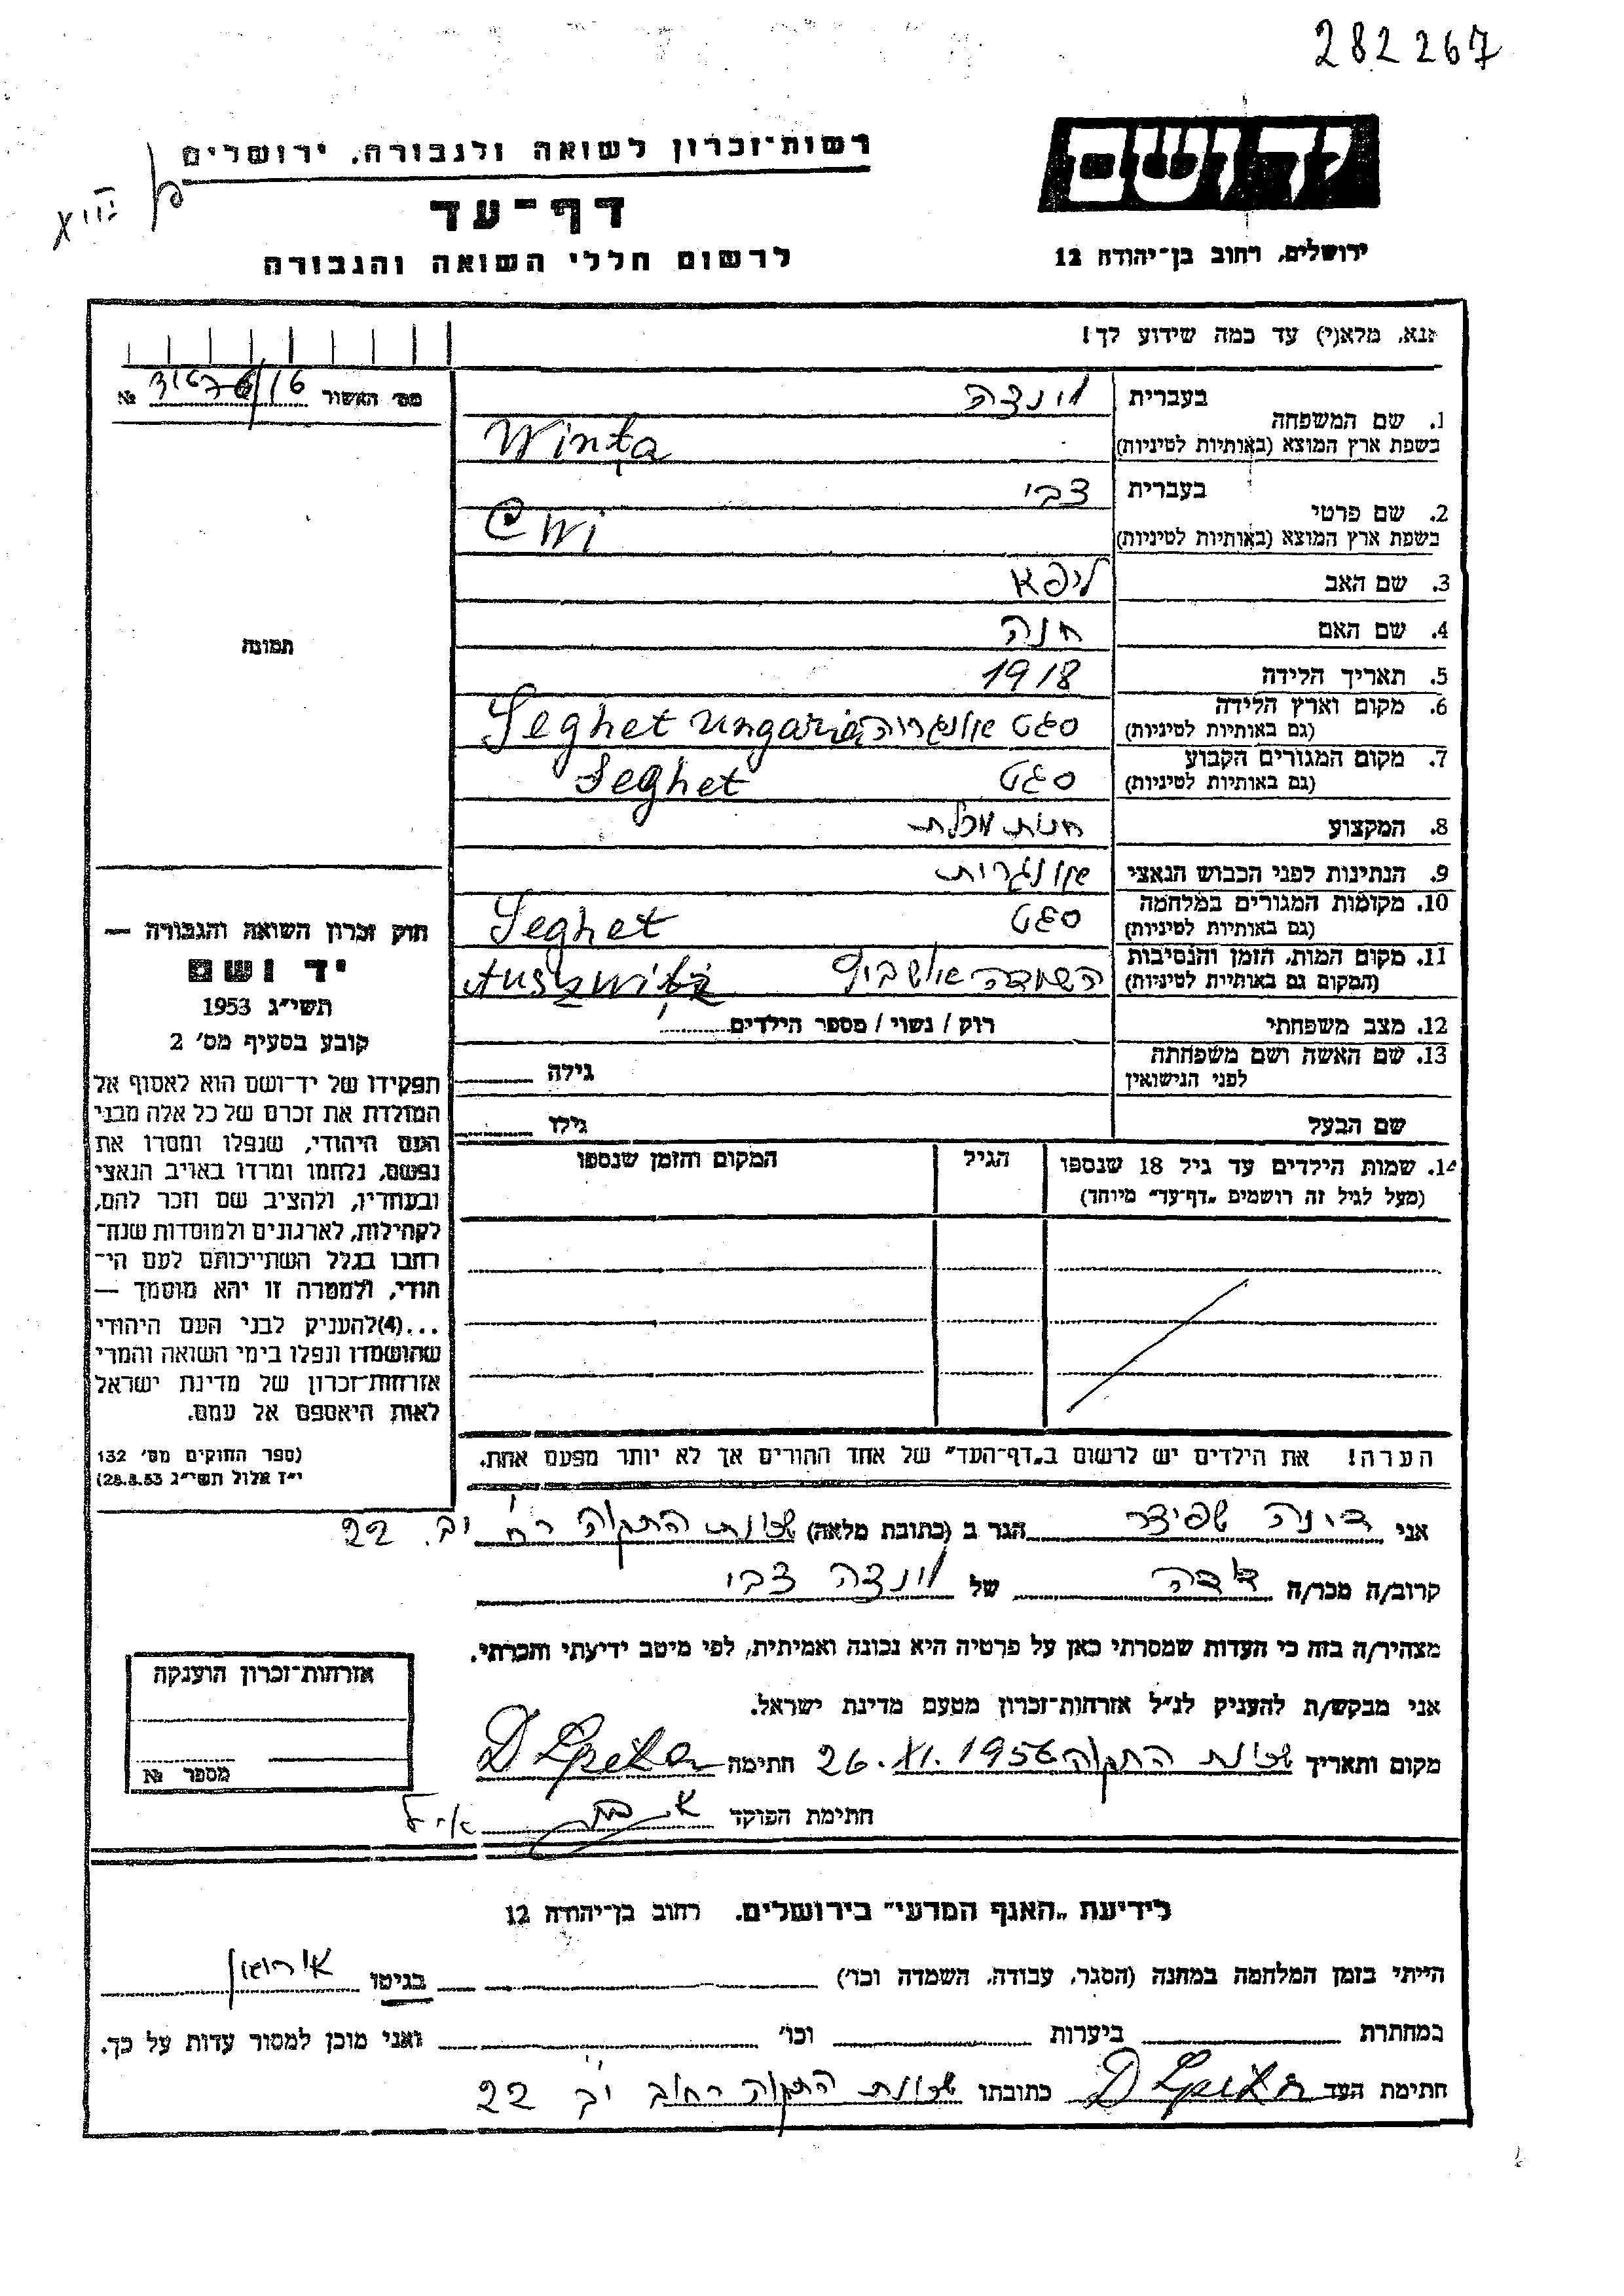 282267
רשות־זכרון לשואה ולגבורה, ירושלים
דף־עד
לרשום חללי השואה והגבורה
יד ושם
ירושלים, רחוב בן־יהודה 12
XII
אנא, מלא(י) עד כמה שידוע לך!
מס׳ האשור № 31676/16
תמונה
1. שם המשפחה בעברית וינצה
בשפת ארץ המוצא (באותיות לטיניות) Winţa
2. שם פרטי בעברית צבי
בשפת ארץ המוצא (באותיות לטיניות) Cwi
3. שם האב ליפא
4. שם האם חנה
5. תאריך הלידה 1918
6. מקום וארץ הלידה (גם באותיות לטיניות) סגט אונגריה Seghet Ungaria
7. מקום המגורים הקבוע (גם באותיות לטיניות) סגט Seghet
8. המקצוע חנות מכלת
9. הנתינות לפני הכבוש הנאצי אונגרית
10. מקומות המגורים במלחמה (גם באותיות לטיניות) סגט Seghet
11. מקום המות, הזמן והנסיבות (המקום גם באותיות לטיניות) השמדה אושביץ Auszwitz
12. מצב משפחתי רוק / נשוי / מספר הילדים
13. שם האשה ושם משפחתה לפני הנישואין גילה
שם הבעל גילו
14. שמות הילדים עד גיל 18 שנספו הגיל המקום והזמן שנספו
(מעל לגיל זה רושמים „דף־עד״ מיוחד)
הערה! את הילדים יש לרשום ב„דף־העד״ של אחד ההורים אך לא יותר מפעם אחת.
חוק זכרון השואה והגבורה —
יד ושם
תשי״ג 1953
קובע בסעיף מס׳ 2
תפקידו של יד־ושם הוא לאסוף אל
המולדת את זכרם של כל אלה מבני
העם היהודי, שנפלו ומסרו את
נפשם, נלחמו ומרדו באויב הנאצי
ובעוזריו, ולהציב שם וזכר להם,
לקהילות, לארגונים ולמוסדות שנח־
רבו בגלל השתייכותם לעם הי־
הודי, ולמטרה זו יהא מוסמך —
...(4)להעניק לבני העם היהודי
שהושמדו ונפלו בימי השואה והמרי
אזרחות־זכרון של מדינת ישראל
לאות היאספם אל עמם.
(ספר החוקים מס׳ 132
י״ז אלול תשי״ג 28.8.53)
אני דונה שפיצר הגר ב (כתובת מלאה) שכונת התקוה רח׳ יב׳ 22
קרוב/ה מכר/ה דדה של וינצה צבי
מצהיר/ה בזה כי העדות שמסרתי כאן על פרטיה היא נכונה ואמיתית, לפי מיטב ידיעתי והכרתי.
אני מבקש/ת להעניק לנ״ל אזרחות־זכרון מטעם מדינת ישראל.
מקום ותאריך שכונת התקוה 26.XI.1956 חתימה
חתימת הפוקד
אזרחות־זכרון הוענקה
מספר №
לידיעת „האגף המדעי״ בירושלים. רחוב בן־יהודה 12
הייתי בזמן המלחמה במחנה (הסגר, עבודה, השמדה וכו׳) בגיטו
במחתרת ביערות וכו׳ ואני מוכן למסור עדות על כך.
חתימת העד כתובתו שכונת התקוה רחוב יב׳ 22